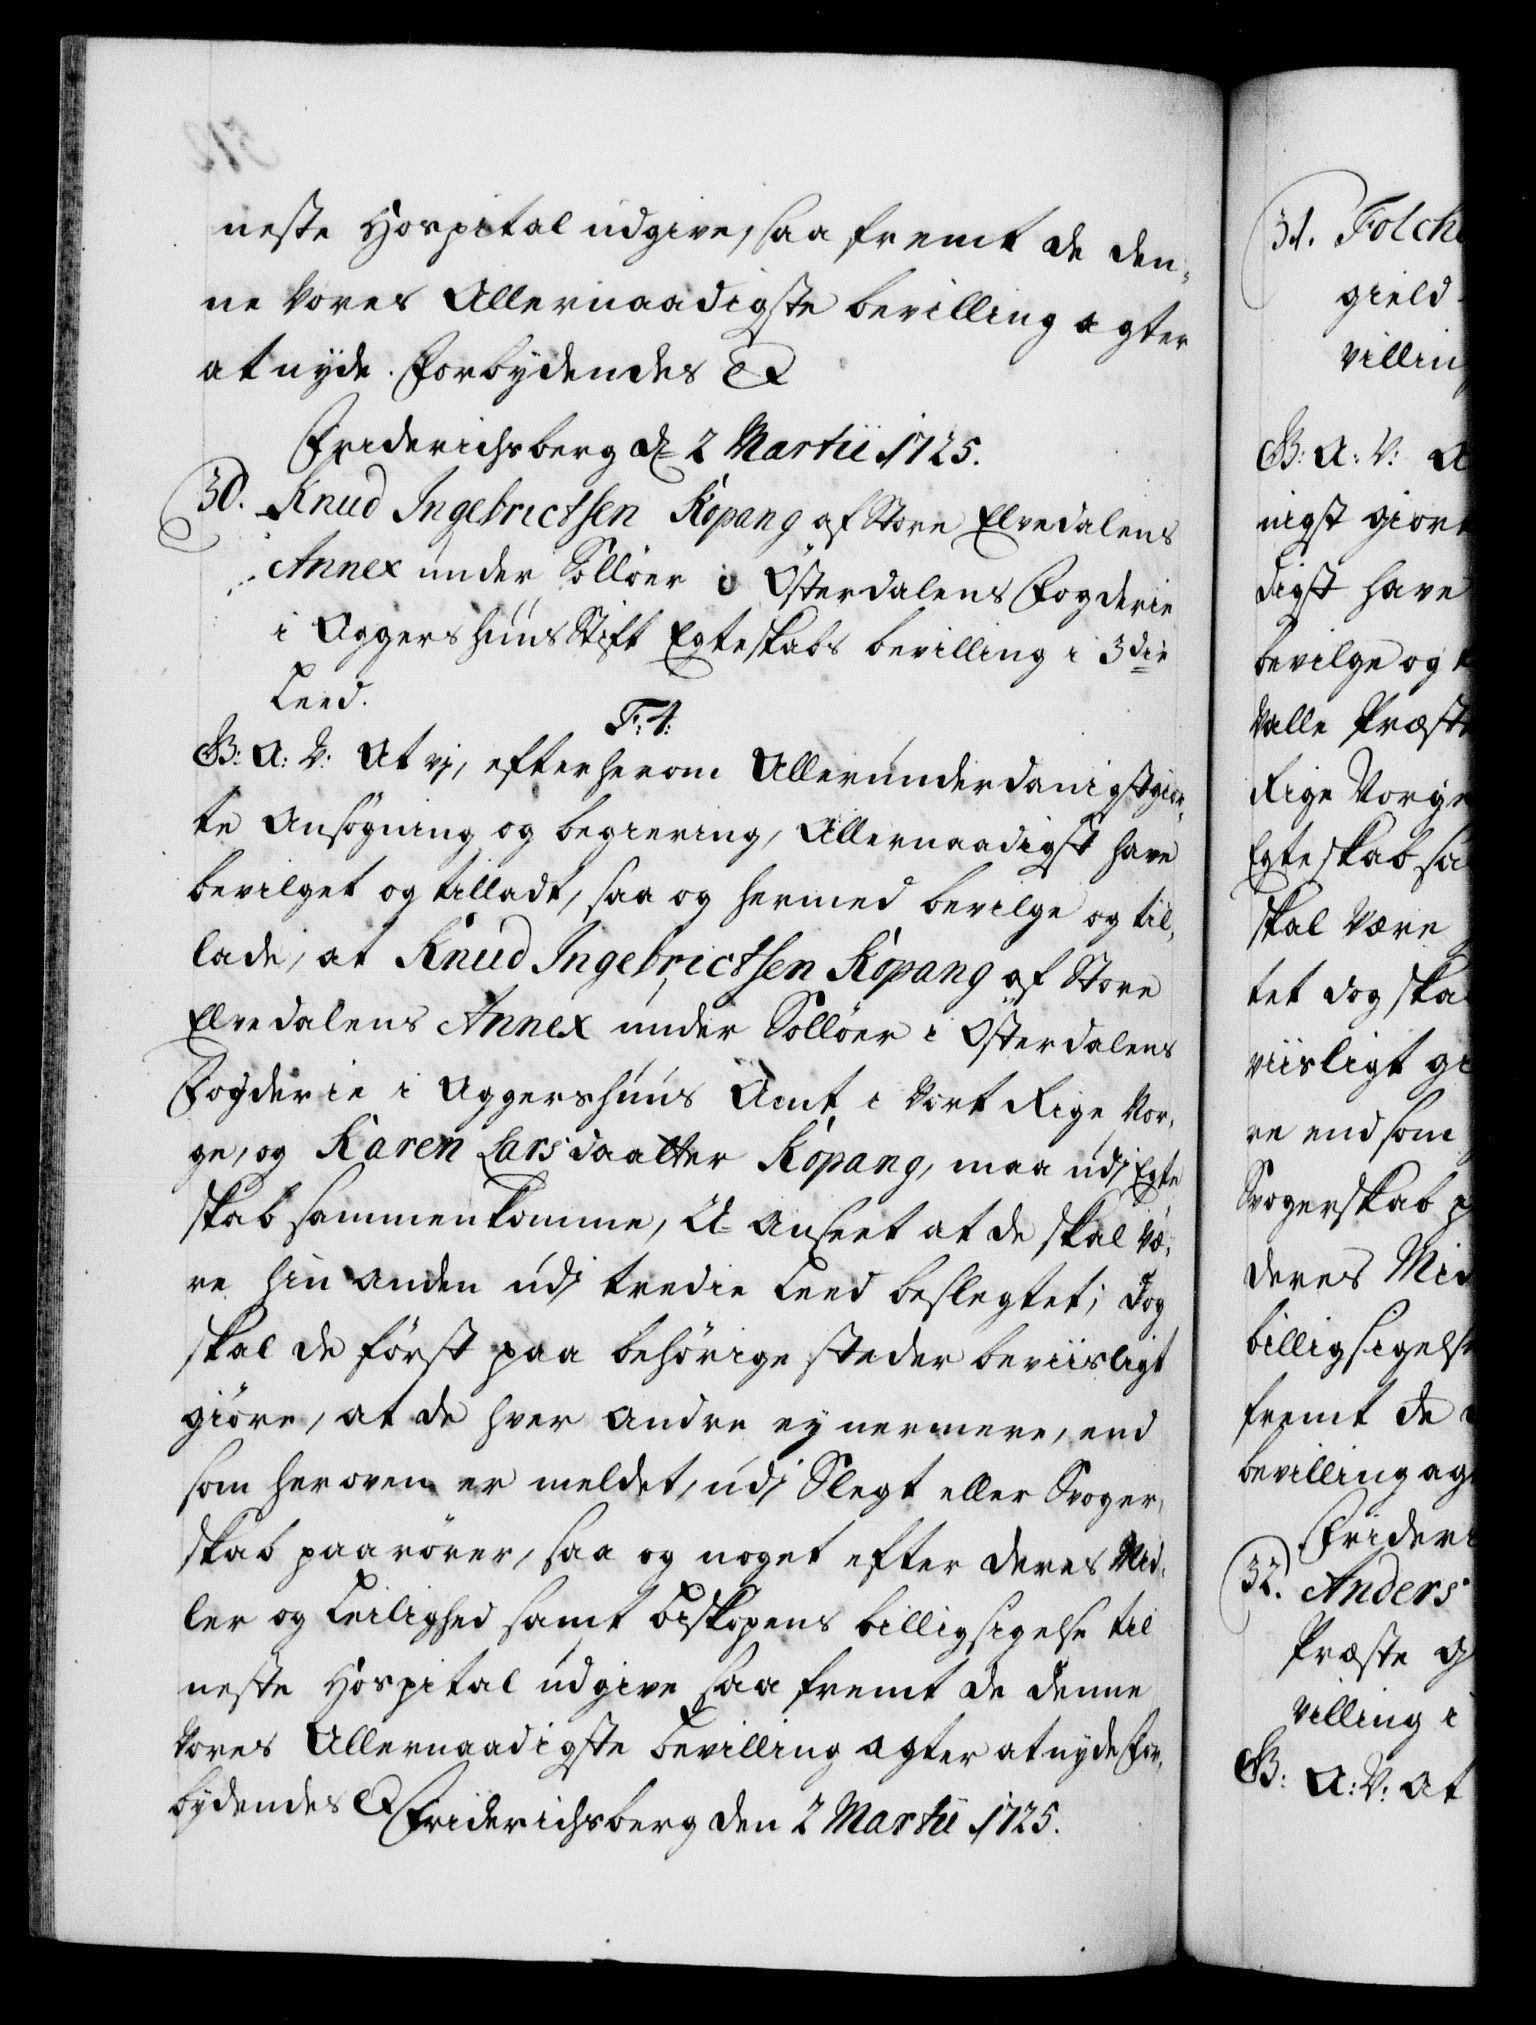 neste Hospital udgive, saa fremt de den-
ne Vores Allernaadigste bevilling agter
at nyde. Forbydendes &
Friderichsberg d. 2 Martii 1725.
30. Knud Ingebrictsen Kopang af Store Elvedalens
Annex under Solløer i Østerdalens Fogderie
i Aggershuus Stift Egteskabs bevilling i 3die
Leed.
F: 4:
G: A: V: At vj, efter herom Allerunderdanigst gior-
te Ansøgning og begiering, Allernaadigst have
bevilget og tilladt, saa og hermed bevilge og til-
lade, at Knud Ingebrictsen Kopang af Store
Elvedalens Annex under Solløer i Østerdalens
Fogderie i Aggershuus Amt i Vort Rige Nor-
ge, og Karen Larsdaatter Kopang, maa udj Egte
skab sammenkomme, U-Anseet at de skal Væ-
re hin anden udj tredie Leed beslegtet; dog
skal de først paa behørige steder beviisligt
giøre, at de hver Andre ey nermere, end
som her oven er meldet, udj Slegt eller Svoger-
skab paarører, saa og noget efter deres Mid-
ler og Leilighed samt Biskopens billigsigelse til
neste Hospital udgive saa fremt de denne
Vores Allernaadigste bevilling agter at nyde For-
bydendes & Friderichsberg den 2 Martii 1725.
31. Folch
gield
villing
G: A: V: A
nigst giort
digst have
bevilge og
Valle Præst
Rige Norge
Egteskab sa
skal være
tet dog ska
viisligt gi
re end som
Svogerskab p
deres Mid
billigsigelse
fremt de
bevilling agt
Frideri
32. Anders
Præste g
villing i
G: A: V: At